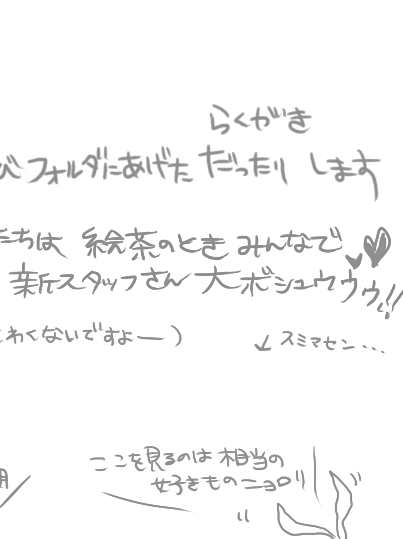 らくがき
フォルダにあげた だったり します
たちは 絵茶のとき みんなで
新スタッフさん 大ボシュウゥゥ!!
わくないですよー)
↓ スミマセン...
ここを見るのは 相当の
好きものニョロリ